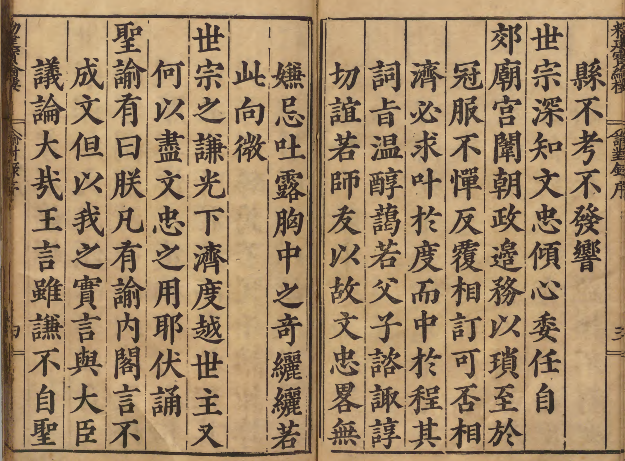 縣不考不發響
世宗深知文忠傾心委任自
郊廟宮闈朝政邉務以瑣至於
冠服不憚反覆相訂可否相
濟必求叶於度而中於程其
詞㫖温醇藹若父子諮諏諄
切誼若師友以故文忠畧無
嫌忌吐露胸中之奇纚纚若
此向微
世宗之謙光下濟度越世主又
何以盡文忠之用耶伏誦
聖諭有曰朕凡有諭内閣言不
成文但以我之實言與大臣
議論大㢤王言雖謙不自聖